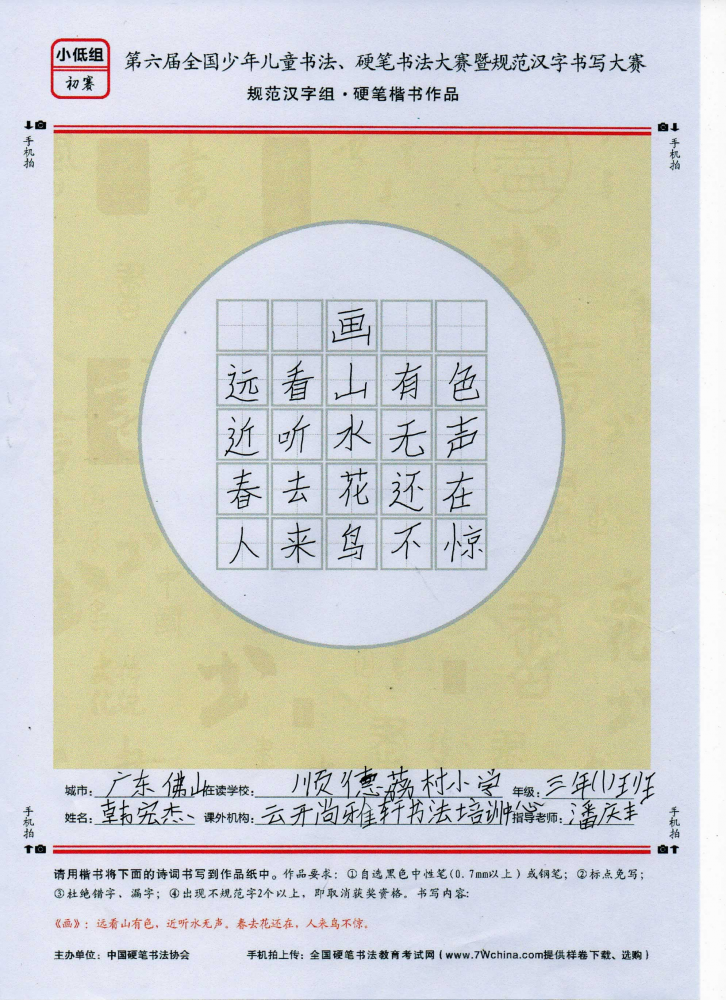 小低组
初赛
第六届全国少年儿童书法、硬笔书法大赛暨规范汉字书写大赛
规范汉字组·硬笔楷书作品
手机拍
手机拍
画
远看山有色
近听水无声
春去花还在
人来鸟不惊
城市：广东佛山 在读学校：顺德荔村小学 年级：三年(1)班
姓名：韩宏杰 课外机构：云开尚雅轩书法培训中心 指导老师：潘庆丰
手机拍
手机拍
请用楷书将下面的诗词书写到作品纸中。作品要求：①自选黑色中性笔(0.7mm以上)或钢笔；②标点免写；
③杜绝错字、漏字；④出现不规范字2个以上，即取消获奖资格。书写内容：
《画》：远看山有色，近听水无声。春去花还在，人来鸟不惊。
主办单位：中国硬笔书法协会 手机拍上传：全国硬笔书法教育考试网（www.7Wchina.com提供样卷下载、选购）